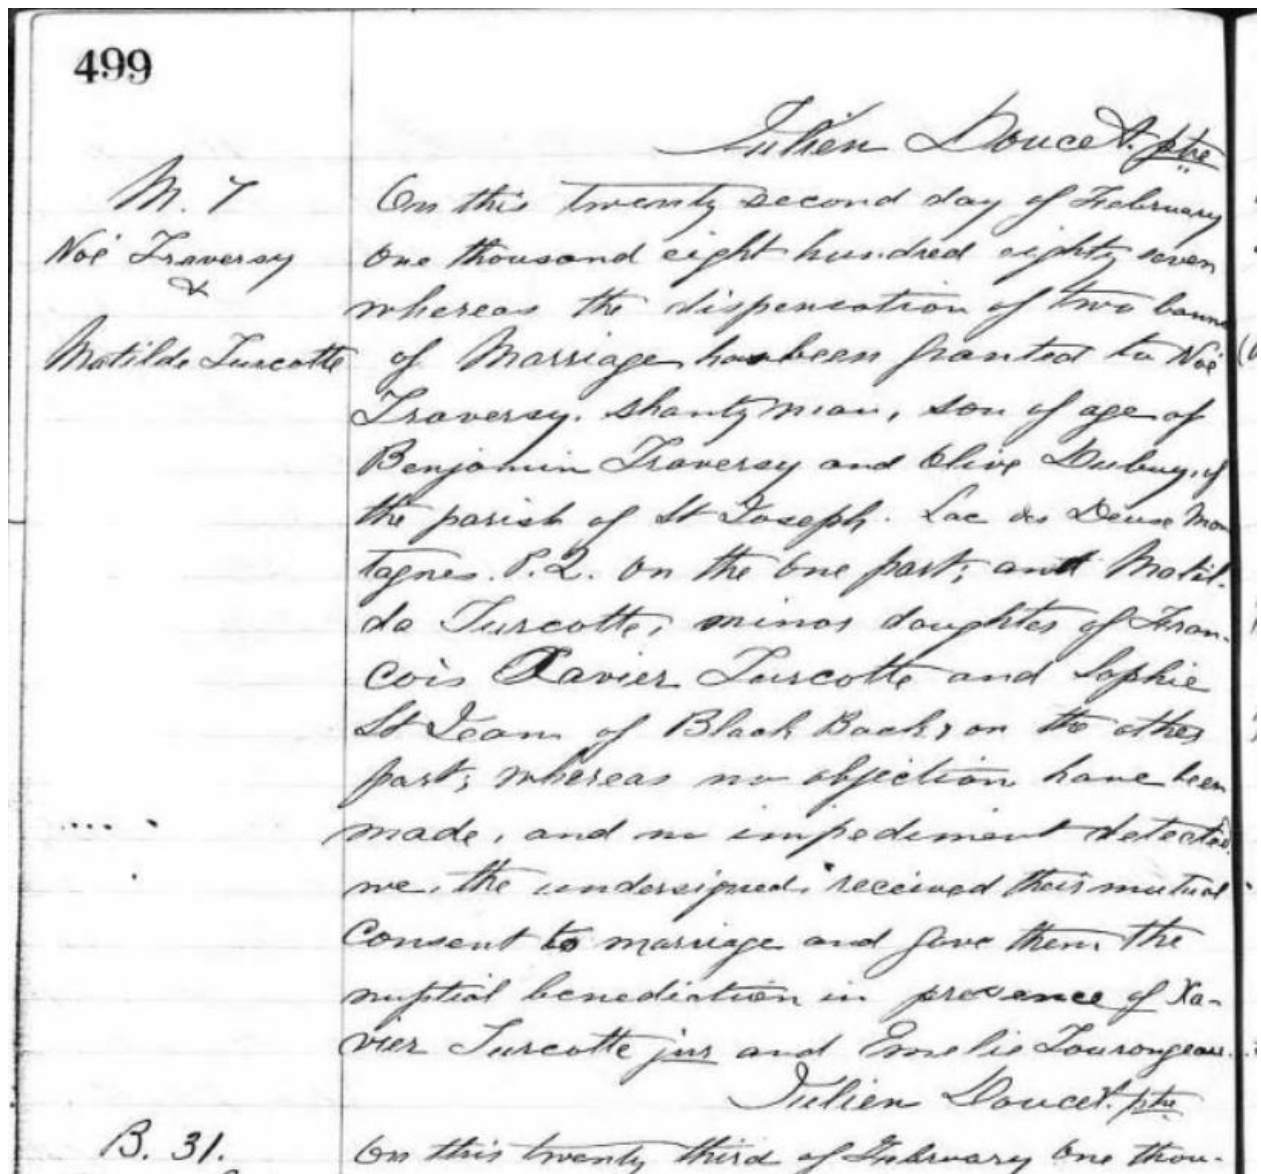 499
Julien Doucet. ptre
M. 7
Noé Traversy
&
Matilde Turcotte
On this twenty second day of February
one thousand eight hundred eighty seven
whereas the dispensation of two banns
of Marriage has been granted to Noé
Traversy. Shantyman, son of age of
Benjamin Traversy and Olive Dubuy, of
the parish of St Joseph. Lac des Deux Mon
tagnes. P.Q. on the one part; and Matil-
da Turcotte, minor daughter of Fran-
cois Xavier Turcotte and Sophie
St Jean of Black Back, on the other
part; whereas no objection have been
made, and no impediment detected
we, the undersigned, received their mutual
consent to marriage and gave them the
nuptial benediction in presence of Xa-
vier Turcotte jnr and Emelie Tourongeau.
Julien Doucet. ptre
B. 31.
On this twenty third of February One thou-